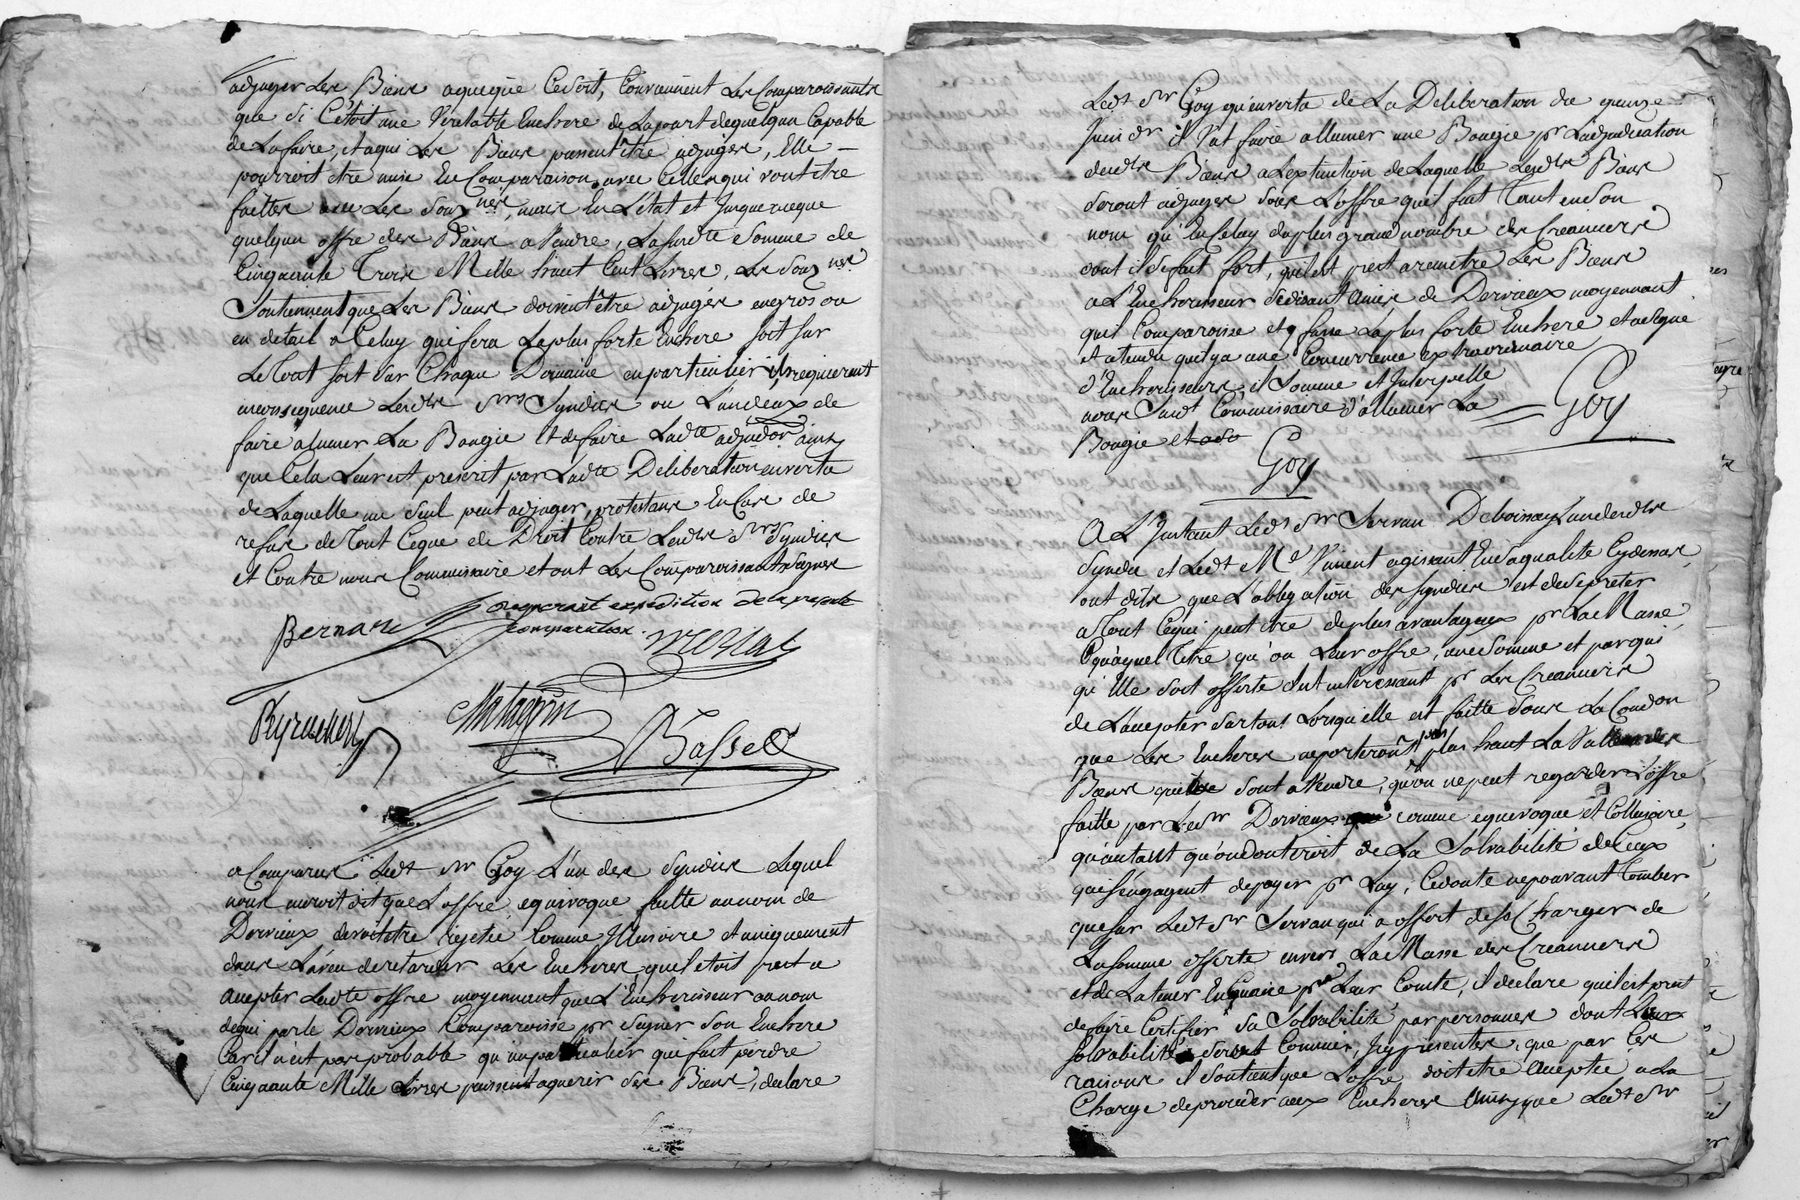 adjuger Les Biens aqueque Cesoit, Conviennent Les Comparoissants
que Si C'étoit une Veritable Enchere de Lapart dequelqun Capable
de Lafaire, et aqui Les Biens pussent être adjugés, Elle
pourroit etre mise En Comparaison avec Celles qui vont être
faittes Les Souz nés, mais En L'état et Jusquaceque
quelqun offre des Biens a Vendre, La susdte Somme de
Cinquante Trois Mille huit Cent Livres, Les Souz nés
Soutiennent que Les Biens doivent être adjugés en gros ou
en detail a Celuy qui fera La plus forte Enchere soit sur
Le Tout soit Sur Chaque Domaine en particulier ils requierent
en consequence Lesdts Srs Syndics ou L'un deux de
faire alumer La Bougie et de faire Ladte adjudon ainsy
que Cela Leur est prescrit par Ladte Deliberation en vertu
de Laquelle un Seul peut adjuger, protestans En Cas de
refus de Tout Ceque de Droit Contre Lesdts Srs Syndics
et Contre nous Commissaire et ont Les Comparoissants Signés
requerant expedition de la presente
comparution
Bernard
Matagrin
Basset
a Comparus Ledt Sr Goy L'un des Syndics Lequel
nous auroit dit que L'offre equivoque faitte au nom de
Dervieux devoit etre rejetté Comme Illusoire et uniquement
dans La vüe de retarder Les Encheres, quil etoit prest a
accepter Ladte offre moyennant que L'Encherisseur au nom
de qui parle Dervieux Comparoisse pr Signer Son Enchere
Car il n'est pas probable qu'un particulier qui fait perdre
Cinquante Mille Livres puisse aquerir des Biens, declare
Ledt Sr Goy qu'en vertu de La Deliberation du quinze
Juin dr il Vat faire allumer une Bougie pr L'adjudication
desdts Biens a L'extinction de Laquelle Lesdts Biens
Seront adjugés Sous L'offre quil fait Tant en Son
nom qu'En Celuy du plus grand nombre des Creanciers
dont il Se fait fort, quil est prest a remettre Les Biens
a L'Encherisseur Se disant Amis de Dervieux moyennant
quil Comparoisse et y fasse La plus forte Enchere, et
et atendu quil y a une Concurrence extraordinaire
d'Encherisseurs, il Somme et Interpelle
nous Susdt Commissaire d'allumer La
Bougie et a
Goy
Goy
A L'Instant Ledt Sr Servan Deboissay L'un desdts
Syndics et Ledt Me Vincent agissant En Sa qualité Cydessus
ont dits que L'obligation des Syndics est de Se preter
a Tout Ce qui peut etre de plus avantageux pr La Masse
qu'a quel Titre qu'on Leur offre, une Somme et par qui
qu'Elle Soit offerte il est interessant pr Les Creanciers
de L'accepter Sur tout Lorsqu'elle est faitte Sous La Condon
que Les Encheres ne porteront pas plus haut La Valleur des
Biens qui Sont a Vendre, qu'on ne peut regarder L'offre
faitte par Ledt Sr Dervieux comme equivoque et Collusoire
qu'autant qu'on douteroit de La Solvabilité de Ceux
qui S'engagent de payer pr Luy, Ce doute ne pouvant Tomber
que Sur Ledt Sr Servan qui a offert de Se Charger de
La Somme offerte envers La Masse des Creanciers
et de La tenir En quaisse pr Leur Comte, il declare quil est prest
de faire Certifier Sa Solvabilité par personnes dont Leur
Solvabilité Seront Connues, que par Ces
raisons il Soutient que L'offre doit etre Acceptée a La
Charge de proceder aux Encheres Ainsy que Ledt Sr